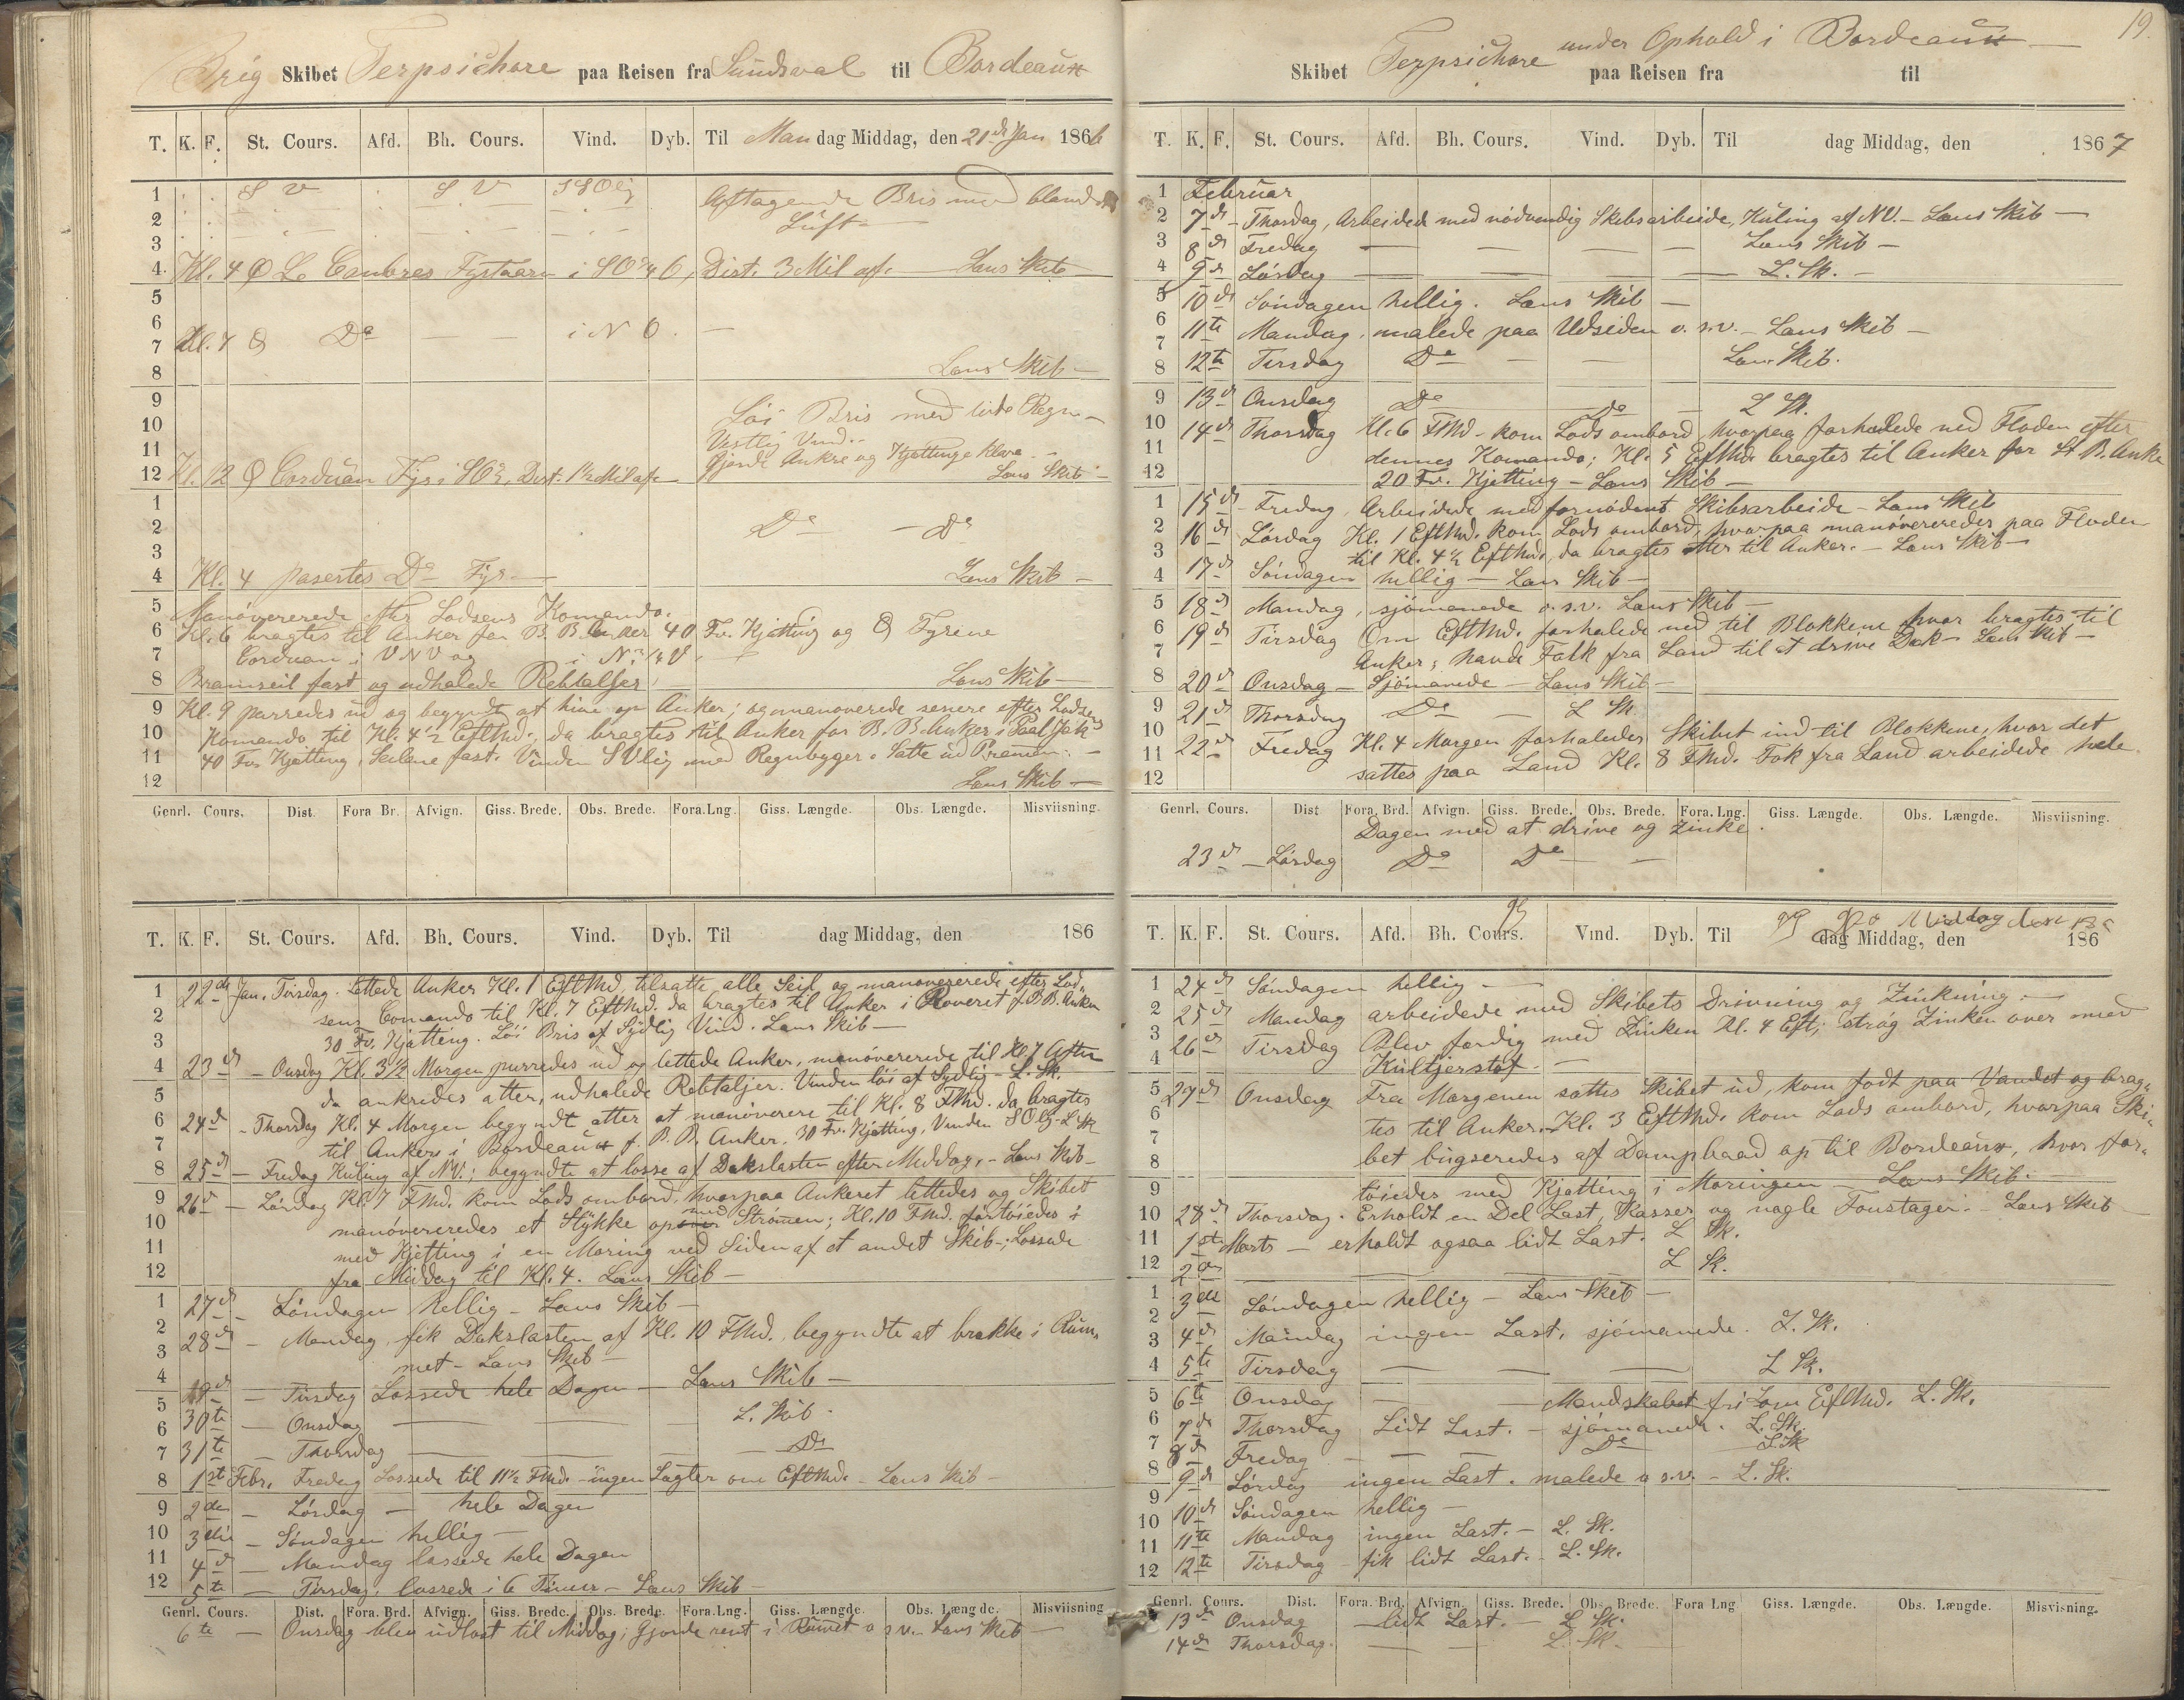 Brig Skibet Terpsichore paa Reisen fra Sundsval til Bordeaux
T. K. F. St. Cours. Afd. Bh. Cours. Vind. Dyb. Til Mandag Middag, den 21de Jan 1866
1 S V S V SSOlig Aftagende Bris med
2 Luft
3
4 Kl. 4 Le Fyrtaarn i SO¾O, Dist. 3 Mil af. Lans Skib
5
6
7 Kl. 7 Do i N O.
8 Lans Skib
9
10 Løi Bris med lidt Regn
11 Vestlig Vind.
Gjorde Ankre og Kjættinge klare
12 Kl. 12 Corduan Fyr i SO, Dist. 1½ Mil af Lans Skib
1
2 Do Do
3
4 Kl. 4 pasertes Do Fyr Lans Skib
5 Manövererede efter Lodsens Komando.
6 Kl. 6 bragtes til Anker for B. B. Anker 40 Fv. Kjætting og Fyrene
7 Corduan i VNV og i N.
8 Bramseil fast og udhalede Rebtaljer Lans Skib
9 Kl. 9 purredes ud og begyndte at hive op Anker; og manoverede senere efter Lodsens
10 Komando til Kl. 4½ EftMd., da bragtes til Anker for B. B. Anker i
11 40 Fv. Kjætting, Seilene fast. Vinden SVlig med Regnbyger. Satte ud Pramen.
12 Lans Skib
Genrl. Cours. Dist. Fora Br. Afvign. Giss. Brede. Obs. Brede. Fora. Lng. Giss. Længde. Obs. Længde. Misviisning.
T. K. F. St. Cours. Afd. Bh. Cours. Vind. Dyb. Til dag Middag, den 186
1 22de Jan. Tirsdag. Lettede Anker Kl. 1 EftMd, tilsatte alle Seil og manovererede efter Lod-
2 sens Comando til Kl. 7 EftMd. da bragtes til Anker i Roveret f. B. B. Anker
3 30 Fv. Kjætting. Löi Bris af Sydlig Vind. Lans Skib
4 23de Onsdag Kl. 3½ Morgen purredes ud og lettede Anker, manövererede til Kl. 7 Aften
5 da ankredes atter, udhalede Rebtaljer. Vinden löi af Sydlig. L. Sk.
6 24de Thorsdag Kl. 4 Morgen begyndt atter at manöverere til Kl. 8 FMd. da bragtes
7 til Ankers i Bordeaux f. B. B. Anker. 30 Fv. Kjætting, Vinden SOlg. L Sk
8 25de Fredag Kuling af NV.; begyndte at losse af Dækslasten efter Middag. Lans Skib
9 26de Lördag Kl. 7 FMd. kom Lods ombord, hvorpaa Ankeret lettedes og Skibet
10 manövereredes et Stykke op med Strömen; Kl. 10 FMd. fortöiedes i
11 med Kjetting i en Moring ved Siden af et andet Skib; Lossede
12 fra Middag til Kl. 4. Lans Skib
1 27de Söndagen hellig. Lans Skib
2 28de Mandag fik Dækslasten af Kl. 10 FMd., begyndte at brække i Rum-
3 met. Lans Skib
4 29de Tirsdag Lossede hele Dagen Lans Skib
5 30te Onsdag L. Skib
6 31te Thorsdag Do
8 1ste Febr. Fredag Lossede til 11½ FMd. ingen Lægter om EftMd. Lans Skib
9 2den Lördag hele Dagen
10 3die Söndagen hellig
11 4de Mandag lossede hele Dagen
12 5te Tirsdag. lossede i 6 Timer. Lans Skib
Genrl. Cours. Dist. Fora. Brd. Afvign. Giss. Brede. Obs. Brede. Fora. Lng. Giss. Længde. Obs. Længde. Misviisning
6te Onsdag blev udlost til Middag; Gjorde rent i Rumet o s v. Lans Skib
19.
Skibet Terpsichore under Ophold i Bordeaux paa Reisen fra til
T. K. F. St. Cours. Afd. Bh. Cours. Vind. Dyb. Til dag Middag, den 1867
1 Februar
2 7de Thorsdag, Arbeidede med nödvendig Skibsarbeide, Kuling af NV. Lans Skib
3 8de Fredag Lans Skib
4 9de Lördag L. Sk.
5 10de Söndagen hellig. Lans Skib
6 11te Mandag, malede paa Udsiden o. s. v. Lans Skib
7
8 12te Tirsdag Do Lans Skib.
9 13de Onsdag Do Do L Sk.
10 14de Thorsdag Kl. 6 FMd. kom Lods ombord, hvorpaa forhalede ned Floden efter
11 dennes Komando; Kl. 5 EftMd. bragtes til Anker for St. B. Anker
12 20 Fv. Kjetting Lans Skib
1 15de Fredag, Arbeidede med fornödent Skibsarbeide Lans Skib
2 16de Lördag Kl. 1 EftMd. kom Lods ombord, hvorpaa manövereredes paa Floden
3 til Kl. 4½ EftMd., da bragtes atter til Anker. Lans Skib
4 17de Söndagen hellig Lans Skib
5 18de Mandag, sjömanede o. s. v. Lans Skib
6 19de Tirsdag Om EftMd. forhalede ned til Blokkene hvor bragtes til
7 Anker; havde Folk fra Land til at drive Dæk Lans Skib
8 20de Onsdag Sjömanede Lans Skib
9 21de Thorsdag Do L Sk
10 22de Fredag Kl. 4 Morgen forhaledes Skibet ind til Blokkene, hvor det
11 sattes paa Land Kl. 8 FMd. Folk fra Land arbeidede hele
12
Genrl. Cours. Dist Fora. Brd. Afvign. Giss. Brede. Obs. Brede. Fora. Lng. Giss. Længde. Obs. Længde. Misviisning.
Dagen med at drive og zinke.
23de Lördag Do Do
Middag den
T. K. F. St. Cours. Afd. Bh. Cours. Vind. Dyb. Til dag Middag, den 186
1 24de Söndagen hellig
2 25de Mandag arbeidede med Skibets Drivning og Zinkning.
3 26de Tirsdag Blev færdig med Zinken Kl. 4 Eft; strög Zinken over med
4 Kultjerstof.
5 27de Onsdag Fra Morgenen sattes Skibet ud, kom fodt paa Vandet og brag-
6 tes til Anker. Kl. 3 EftMd. kom Lods ombord, hvorpaa Ski-
7
8 bet bugseredes af Dampbaad op til Bordeaux, hvor for-
9 töiedes med Kjetting i Moringen Lans Skib.
10 28de Thorsdag. Erholdt en Del Last, Kasser og nogle Foustager. Lans Skib
11 1ste Marts erholdt ogsaa lidt Last. L Sk.
12 2den L Sk.
1 3die Söndagen hellig Lans Skib
2
3 4de Mandag ingen Last, sjömanede. L. Sk.
4 5te Tirsdag L Sk.
5 6te Onsdag Mandskabet fri om EftMd. L. Sk.
6 7de Thorsdag Lidt Last. sjömanede. L. Sk.
7 8de Fredag Do L Sk
8 9de Lördag ingen Last. malede o s. v. L. Sk.
9
10 10de Söndagen hellig
11 11te Mandag ingen Last. L. Sk.
12 12te Tirsdag fik lidt Last. L. Sk.
Genrl. Cours. Dist. Fora. Brd. Afvign. Giss. Brede. Obs. Brede. Fora Lng Giss. Længde. Obs. Længde. Misvisning.
13de Onsdag lidt Last. L Sk.
14de Thorsdag. L. Sk.